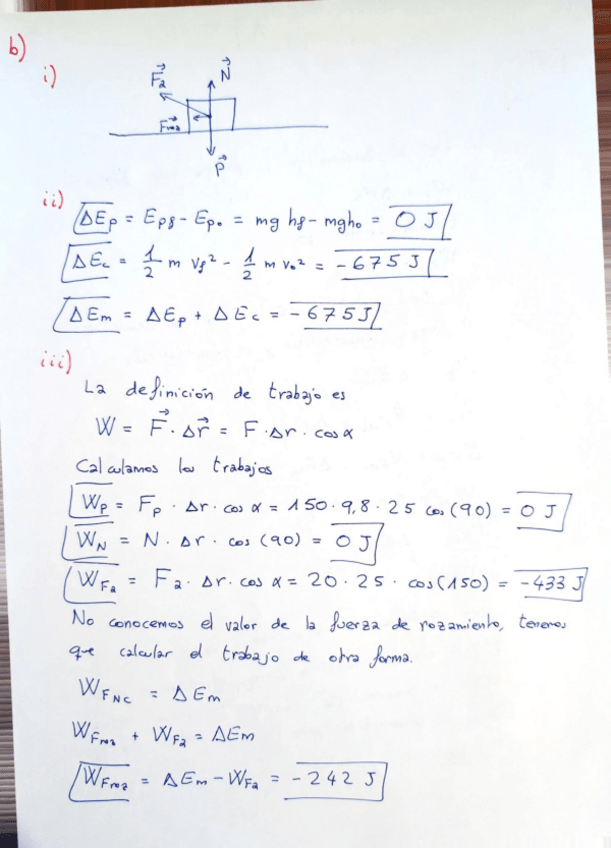 b)
i)
F⃗₂ N⃗
F⃗roz
P⃗
ii)
ΔEp = Epf - Ep₀ = mg hf - mgh₀ = 0 J
ΔEc = 1/2 m vf² - 1/2 m v₀² = -675 J
ΔEm = ΔEp + ΔEc = -675J
iii)
La definición de trabajo es
W = F⃗ · Δr⃗ = F · Δr · cos α
Calculamos los trabajos
Wp = Fp · Δr · cos α = 150 · 9,8 · 25 cos (90) = 0 J
WN = N · Δr · cos (90) = 0 J
WF₂ = F₂ · Δr · cos α = 20 · 25 · cos(150) = -433 J
No conocemos el valor de la fuerza de rozamiento, tenemos
que calcular el trabajo de otra forma.
WFNC = ΔEm
WFroz + WF₂ = ΔEm
WFroz = ΔEm - WF₂ = -242 J